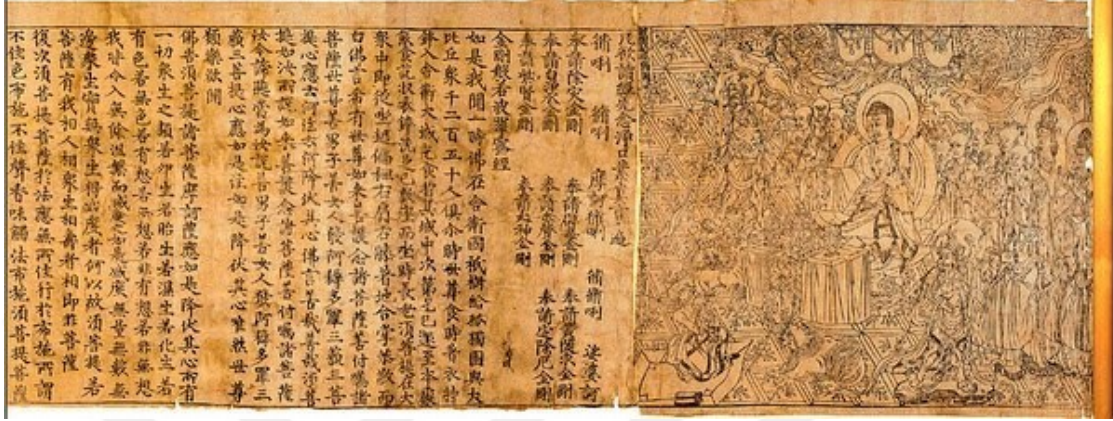 凡欲讀經先念淨口業真言一遍
脩唎 脩唎 摩訶脩唎 脩脩唎 娑婆訶
奉請除災金剛 奉請辟毒金剛 奉請黃隨求金剛
奉請白淨水金剛 奉請赤聲金剛 奉請定除厄金剛
奉請紫賢金剛 奉請大神金剛
金剛般若波羅蜜經
如是我聞一時佛在舍衛國祇樹給孤獨園與大
比丘眾千二百五十人俱尒時世尊食時著衣持
鉢入舍衛大城乞食於其城中次第乞已還至本處
飯食訖收衣鉢洗足已敷座而坐時長老須菩提在大
眾中即從座起偏袒右肩右膝著地合掌恭敬而
白佛言希有世尊如來善護念諸菩薩善付囑諸
菩薩世尊善男子善女人發阿耨多羅三藐三菩
提心應云何住云何降伏其心佛言善哉善哉須菩
提如汝所說如來善護念諸菩薩善付囑諸菩薩
汝今諦聽當為汝說善男子善女人發阿耨多羅三
藐三菩提心應如是住如是降伏其心唯然世尊
願樂欲聞
佛告須菩提諸菩薩摩訶薩應如是降伏其心所有
一切眾生之類若卵生若胎生若濕生若化生若
有色若無色若有想若無想若非有想若非無想
我皆令入無餘涅槃而滅度之如是滅度無量無數無
邊眾生實無眾生得滅度者何以故須菩提若
菩薩有我相人相眾生相壽者相即非菩薩
復次須菩提菩薩於法應無所住行於布施所謂
不住色布施不住聲香味觸法布施須菩提菩薩